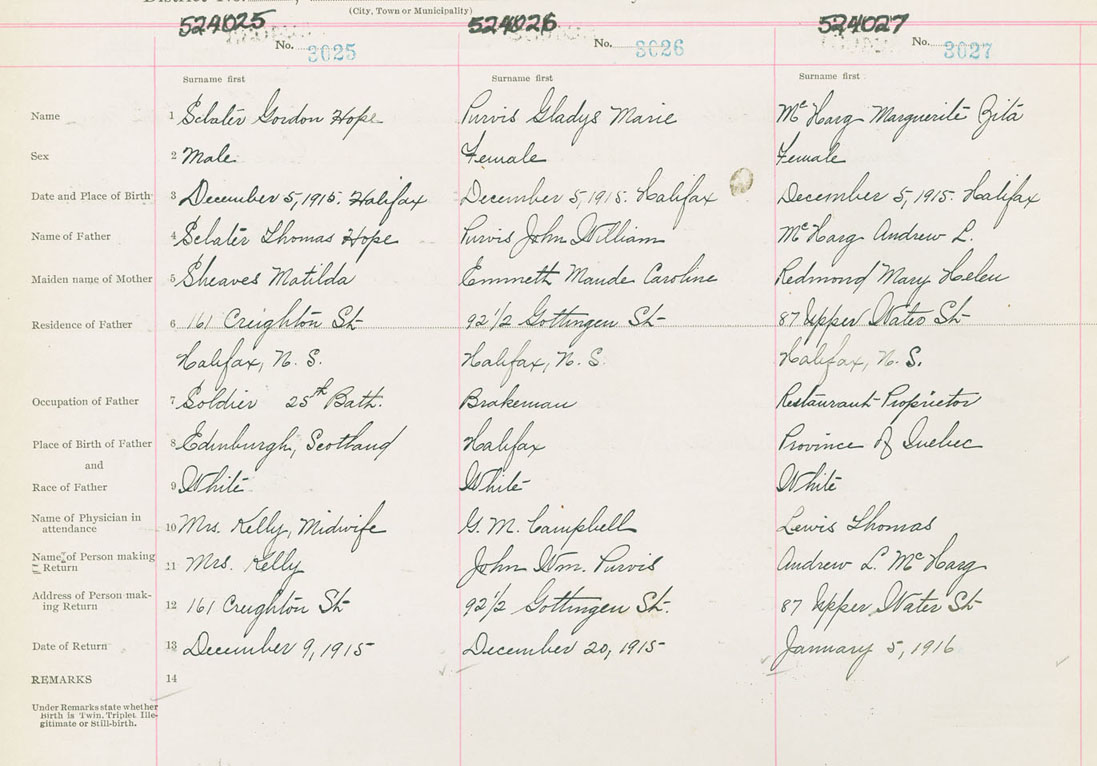 (City, Town or Municipality)
524025 524026 524027
No. 3025 No. 3026 No. 3027
Surname first Surname first Surname first
Name 1 Sclater Gordon Hope Purvis Gladys Marie McHarg Marguerite Zita
Sex 2 Male Female Female
Date and Place of Birth 3 December 5, 1915. Halifax December 5, 1915. Halifax December 5, 1915. Halifax
Name of Father 4 Sclater Thomas Hope Purvis John William McHarg Andrew L.
Maiden name of Mother 5 Sheaves Matilda Emmett Maude Caroline Redmond Mary Helen
Residence of Father 6 161 Creighton St 92 1/2 Gottingen St 87 Upper Water St
Halifax, N. S. Halifax, N. S. Halifax, N. S.
Occupation of Father 7 Soldier 25th Batt. Brakeman Restaurant Proprietor
Place of Birth of Father 8 Edinburgh, Scotland Halifax Province of Quebec
and
Race of Father 9 White White White
Name of Physician in
attendance 10 Mrs. Kelly, Midwife G. M. Campbell Lewis Thomas
Name of Person making
Return 11 Mrs. Kelly John Wm. Purvis Andrew L. McHarg
Address of Person mak-
ing Return 12 161 Creighton St 92 1/2 Gottingen St. 87 Upper Water St
Date of Return 13 December 9, 1915 December 20, 1915 January 5, 1916
REMARKS 14
Under Remarks state whether
Birth is Twin, Triplet, Ille-
gitimate or Still-birth.